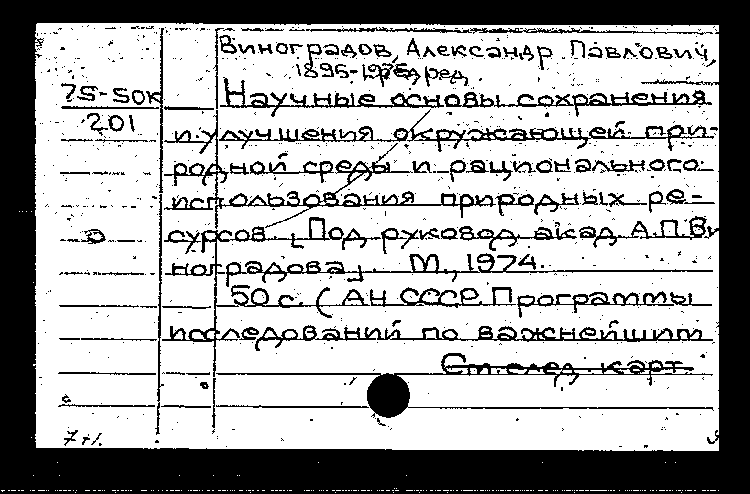 Виноградов, Александр Павлович,
1895-1975, ред.
75-50к
Научные основы сохранения
201
и улучшения окружающей при-
родной среды и рационального
использования природных ре-
сурсов. [Под руковод. акад. А.П.Ви
ноградова]. М., 1974.
50 с. (АН СССР. Программы
исследований по важнейшим
См. след. карт.
7+1.